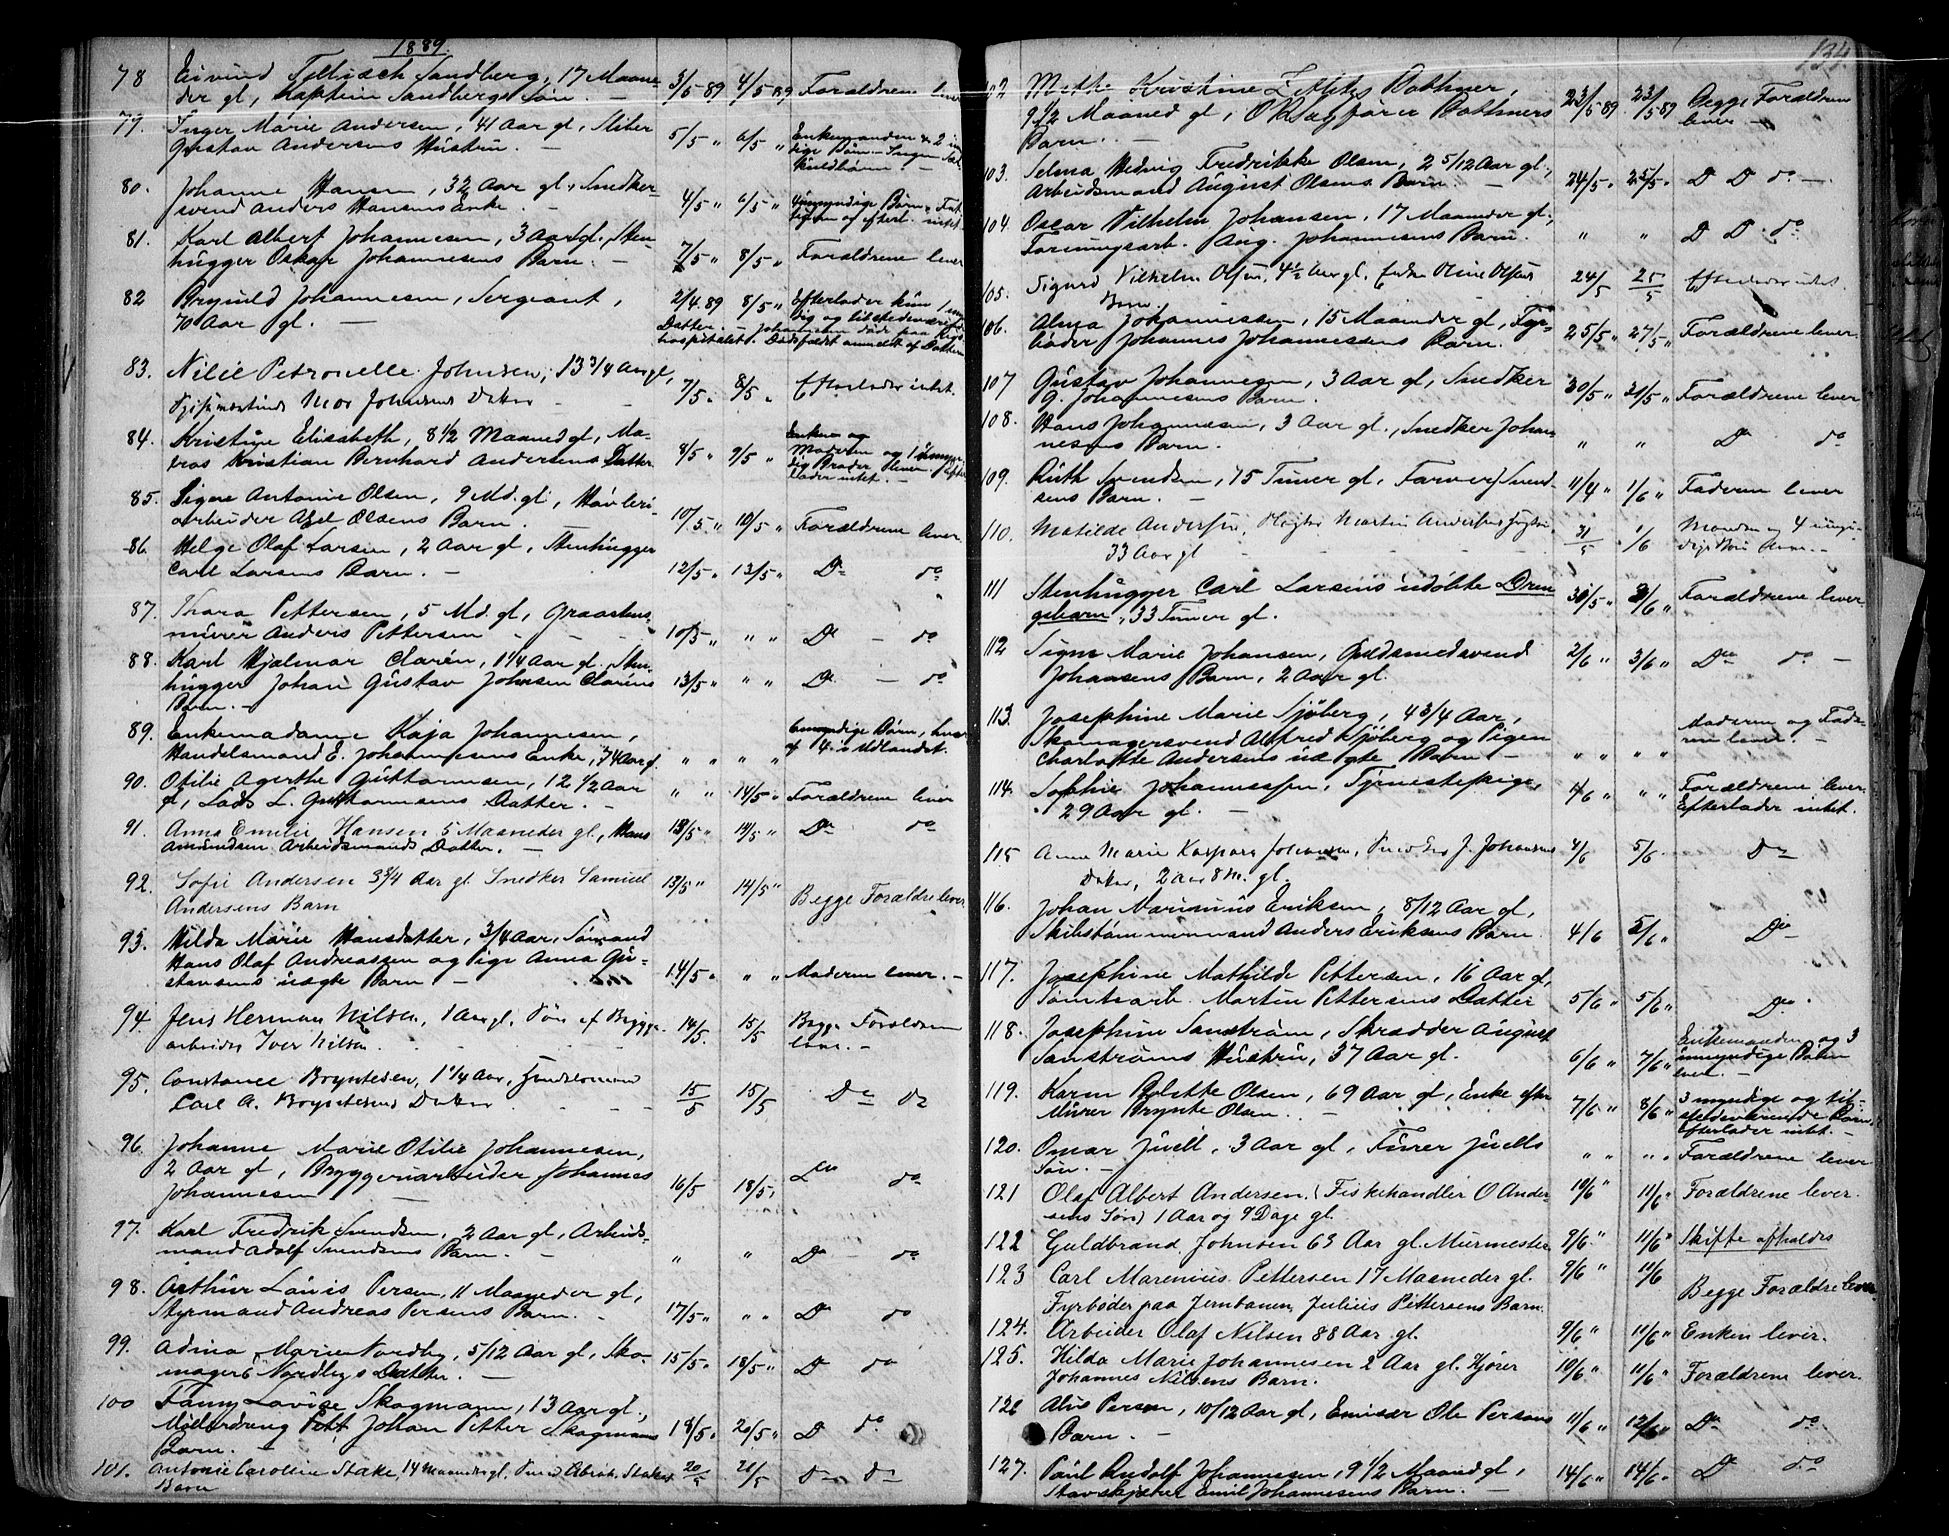 1889.
134.
78 Eivind Sandberg, 17 Maane-
der gl, Kaptein Sandbergs Søn. — 3/5 89 4/5 89 Forældrene lever
79. Inger Marie Andersen, 41 Aar gl,
Gustav Andersens Hustru. — 5/5 " 6/5 " Enkemanden & 2
80. Johanne Hansen, 32 Aar gl, Snedker-
svend Anders Hansens Enke. — 4/5 " 6/5 " Umyndige Børn.
81. Karl Albert Johannesen, 3 Aar gl. Sten-
hugger Oskar Johannesens Barn. — 7/5 " 8/5 " Forældrene lever
82 Brynild Johannesen, Sergeant,
70 Aar gl. — 2/4 89 8/5 " Efterlader kun 1
Datter. — Johannesen døde paa Rigs-
hospitalet. Dødsfaldet anmeldt af Datteren
83. Nilie Petronelle Johnsen, 13 3/4 Aar gl,
Johnsens Datter — 7/5 " 8/5 " Efterlader intet.
84. Kristine Elisabeth, 8 1/2 Maaned gl, Ma-
tros Kristian Bernhard Andersens Datter 8/5 " 9/5 " Moderen og 1 umyn-
dig Broder lever. Efter-
lader intet. —
85. Signe Antonie Olsen, 9 Md. gl, Høvleri-
arbeider Axel Olsens Barn. — 10/5 " 10/5 " Forældrene lever.
86. Helge Olaf Larsen, 2 Aar gl, Stenhugger
Carl Larsens Barn. — 12/5 " 13/5 " Do do
87. Thora Pettersen, 5 Md. gl, Graastens-
murer Anders Pettersen 10/5 " " " Do — do
88. Karl Hjalmar Clarén, 1 1/4 Aar gl. Sten-
hugger Johan Gustav Johnsen Claréns
Barn. — 13/5 " " " Do — do
89. Enkemadame Kaja Johannesen,
Handelsmand E. Johannesens Enke, 74 Aar gl. " " " " 6 myndige Børn, hvor-
af 4 i Udlandet.
90. Otilie Agerthe Guttormsen, 12 1/2 Aar
gl, Lods L. Guttormsens Datter. — " " 14/5 " Forældrene lever
91. Anna Emilie Hansen 5 Maaneder gl, Hans
Amundsen Arbeidsmands Datter. — 13/5 " 14/5 " Do do
92. Sofie Andersen 3 3/4 Aar gl. Snedker Samuel
Andersens Barn 13/5 " 14/5 " Begge Forældre lever
93. Hilda Marie Hansdatter, 3/4 Aar, Sømand
Hans Olaf Andreassen og Pige Anna Gu-
stavsens uægte Barn — 14/5 " " " Moderen lever. —
94. Jens Herman Nilsen, 1 Aar gl. Søn af Brygge-
arbeider Iver Nilsen. 14/5. 15/5 Begge Forældrene
lever. —
95. Constance Bryntesen, 1 1/4 Aar,
Carl A. Bryntesens Datter 15/5 15/5 Do do
96. Johanne Marie Otilie Johannesen,
2 Aar gl, Bryggeriarbeider Johannes
Johannesen — 16/5 18/5 Do do
97. Karl Fredrik Svendsen, 2 Aar gl, Arbeids-
mand Adolf Svendsens Barn. — " " Do do
98. Arthur Louis Persen, 11 Maaneder gl,
Styrmand Andreas Persens Barn. — 17/5 " " " Do do
99. Adina Marie Nordby, 5/12 Aar gl, Sko-
mager Nordbys Datter. — 15/5 " 18/5 " Do do
100 Fanny Lovise Skogmann, 13 Aar gl,
Johan Petter Skogmans
Barn. — 19/5 " 20/5 " Do do
101. Antonie Caroline Stake, 14 Maaneder gl, Stakes
Barn 20/5 21/5 Do do
102 Mette Kristine Bothner,
9 1/2 Maaned gl, O.R.Sagfører Bothners
Barn. — 23/5 89 23/5 89 Begge Forældrene
lever —
103. Selma Hedvig Fredrikke Olsen, 2 5/12 Aar gl,
Arbeidsmand August Olsens Barn — 24/5 " 25/5 " D D do —
104. Oscar Vilhelm Johansen, 17 Maaneder gl,
Aug. Johannesens Barn. " " D D do
105. Sigurd Vilhelm Olsen, 4 1/2 Aar gl. Enke Oline Olsens
Barn. 24/5 25/5 Efterlader intet.
106. Alma Johannessen, 15 Maaneder gl, Fyr-
bøder Johannes Johannessens Barn. 25/5 " 27/5 " Forældrene lever
107 Gustav Johannesen, 3 Aar gl, Snedker
G. Johannesens Barn. 30/5 " 31/5 " Forældrene lever
108. Hans Johannesen, 3 Aar gl., Snedker Johan-
nesens Barn. — " " Do do
109. Ruth Svendsen, 15 Timer gl, Farver Svend-
sens Barn. — 11/4 " 1/6 " Faderen lever
110. Matilde Andersen, Martin Andersens
33 Aar gl — 31/5 1/6 Manden og 4
111 Stenhugger Carl Larsens udøbte Dren-
gebarn, 33 Timer gl. 30/5 " 3/6 " Forældrene lever
112 Signe Marie Johansen, Guldsmedsvend
Johansens Barn, 2 Aar gl. 2/6 " 3/6 " Do do —
113. Josephine Marie Sjøberg, 4 3/4 Aar,
Skomagersvend Alfred Sjøberg og Pigen
Charlotte Andersens uægte Barn — " " " " Moderen og Fade-
ren lever. —
114. Sophie Johannessen, Tjenestepige,
29 Aar gl. — 4/6 " " " Forældrene lever.
Efterlader intet.
115 Anne Marie Kaspara Johansen, J. Johansens
Datter, 2 Aar 8 M. gl. 4/6 5/6 Do
116. Johan Marinius Eriksen, 8/12 Aar gl,
Skibstømmermand Anders Eriksens Barn. 4/6 5/6 " Do
117. Josephine Mathilde Pettersen, 16 Aar gl,
Tomtearb. Martin Pettersens Datter 5/6 " 5/6 " Do.
118. Josephine Sanstrøm, Skrædder August
Sanstrøms Hustru, 37 Aar gl. 6/6 " 7/6 " Enkemanden og 3
umyndige Børn
lever. —
119. Karen Olsen, 69 Aar gl, Enke efter
Murer Brynte Olsen. — 7/6 " 8/6 " 3 myndige og til-
stedeværende Børn.
Efterlader intet. —
120. Omar Juell, 3 Aar gl, Fører Juells
Søn. — " " " " Forældrene lever
121 Olaf Albert Andersen. (Fiskehandler O Ander-
sens Søn) 1 Aar og 9 Dage gl. 10/6 " 11/6 " Forældrene lever.
122 Guldbrand Johnsen 63 Aar gl. Murmester 9/6 " 11/6 " Skifte afholdes
123 Carl Marenius Pettersen 17 Maaneder gl.
Fyrbøder paa Jernbanen, Julius Pettersens Barn. 9/6 " 11/6 Begge Forældre lever
124. Arbeider Olaf Nilsen 88 Aar gl. 9/6 " 11/6 " Enken lever.
125. Hilda Marie Johannesen 2 Aar gl. Kjører
Johannes Nilsens Barn. 10/6 " 11/6 " Forældrene lever.
126 Alvis Persen, 10/12 Aar gl, Emissær Ole Persens
Barn. — 11/6 " 12/6 " Do do
127. Paul Rudolf Johannesen, 9 1/2 Maaned gl,
Stavskjærer Emil Johannesens Barn. — 14/6 " 14/6 " Do do